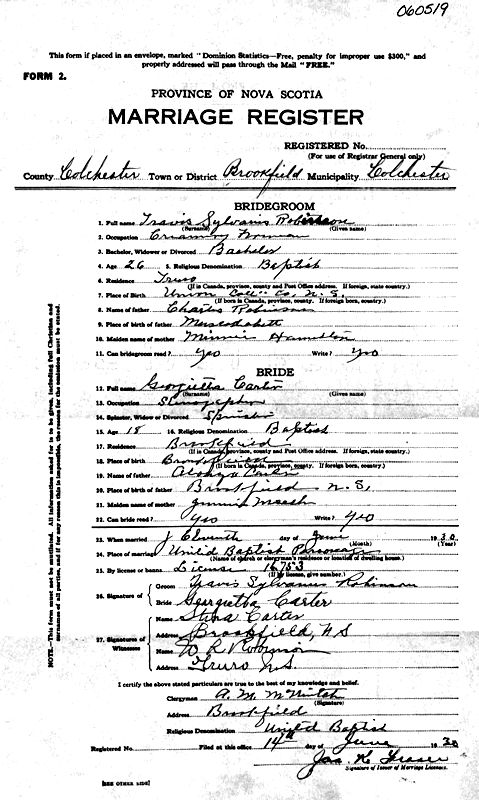 060519
This form if placed in an envelope, marked "Dominion Statistics—Free, penalty for improper use $300," and
properly addressed will pass through the Mail "FREE."
FORM 2.
PROVINCE OF NOVA SCOTIA
MARRIAGE REGISTER
REGISTERED No.
(For use of Registrar General only)
County Colchester Town or District Brookfield Municipality Colchester
BRIDEGROOM
1. Full name Travis Sylvanis Robinson
(Surname) (Given name)
2. Occupation Creamery Foreman
3. Bachelor, Widower or Divorced Bachelor
4. Age 26 5. Religious Denomination Baptist
6. Residence Truro
(If in Canada, province, county and Post Office address. If foreign, state country.)
7. Place of Birth Union Col. Co, N.S.
(If born in Canada, province, county. If foreign born, country.)
8. Name of father Charles Robinson
9. Place of birth of father
10. Maiden name of mother Minnie Hamilton
11. Can bridegroom read? yes Write? yes
BRIDE
12. Full name Georgietta Carter
(Surname) (Given name)
13. Occupation Stenographer
14. Spinster, Widow or Divorced Spinster
15. Age 18 16. Religious Denomination Baptist
17. Residence Brookfield
(If in Canada, province, county and Post Office address. If foreign, state country.)
18. Place of birth Brookfield
(If born in Canada, province, county. If foreign born, country.)
19. Name of father Carter
20. Place of birth of father Brookfield N.S.
21. Maiden name of mother
22. Can bride read? yes Write? yes
23. When married Eleventh day of June 1930
(Month) (Year)
24. Place of marriage United Baptist Parsonage
(Name of church or clergyman's residence or location of dwelling house.)
25. By license or banns License 16753
(If by license, give number.)
26. Signature of Groom Travis Sylvanus Robinson
Bride Georgietta Carter
27. Signatures of Witnesses Name Carter
Address Brookfield, N.S
Name W R Robinson
Address Truro N.S.
I certify the above stated particulars are true to the best of my knowledge and belief.
Clergyman A. M.
(Signature)
Address Brookfield
Religious Denomination United Baptist
Registered No. Filed at this office 14th day of June 1930
Jas. K. Fraser
Signature of Issuer of Marriage Licenses.
[SEE OTHER SIDE]
NOTE.—This form must not be mutilated. All information asked for is to be given, including full Christian and
surname of all parties, and if for any reason this is impossible, the reason for the omission must be stated.